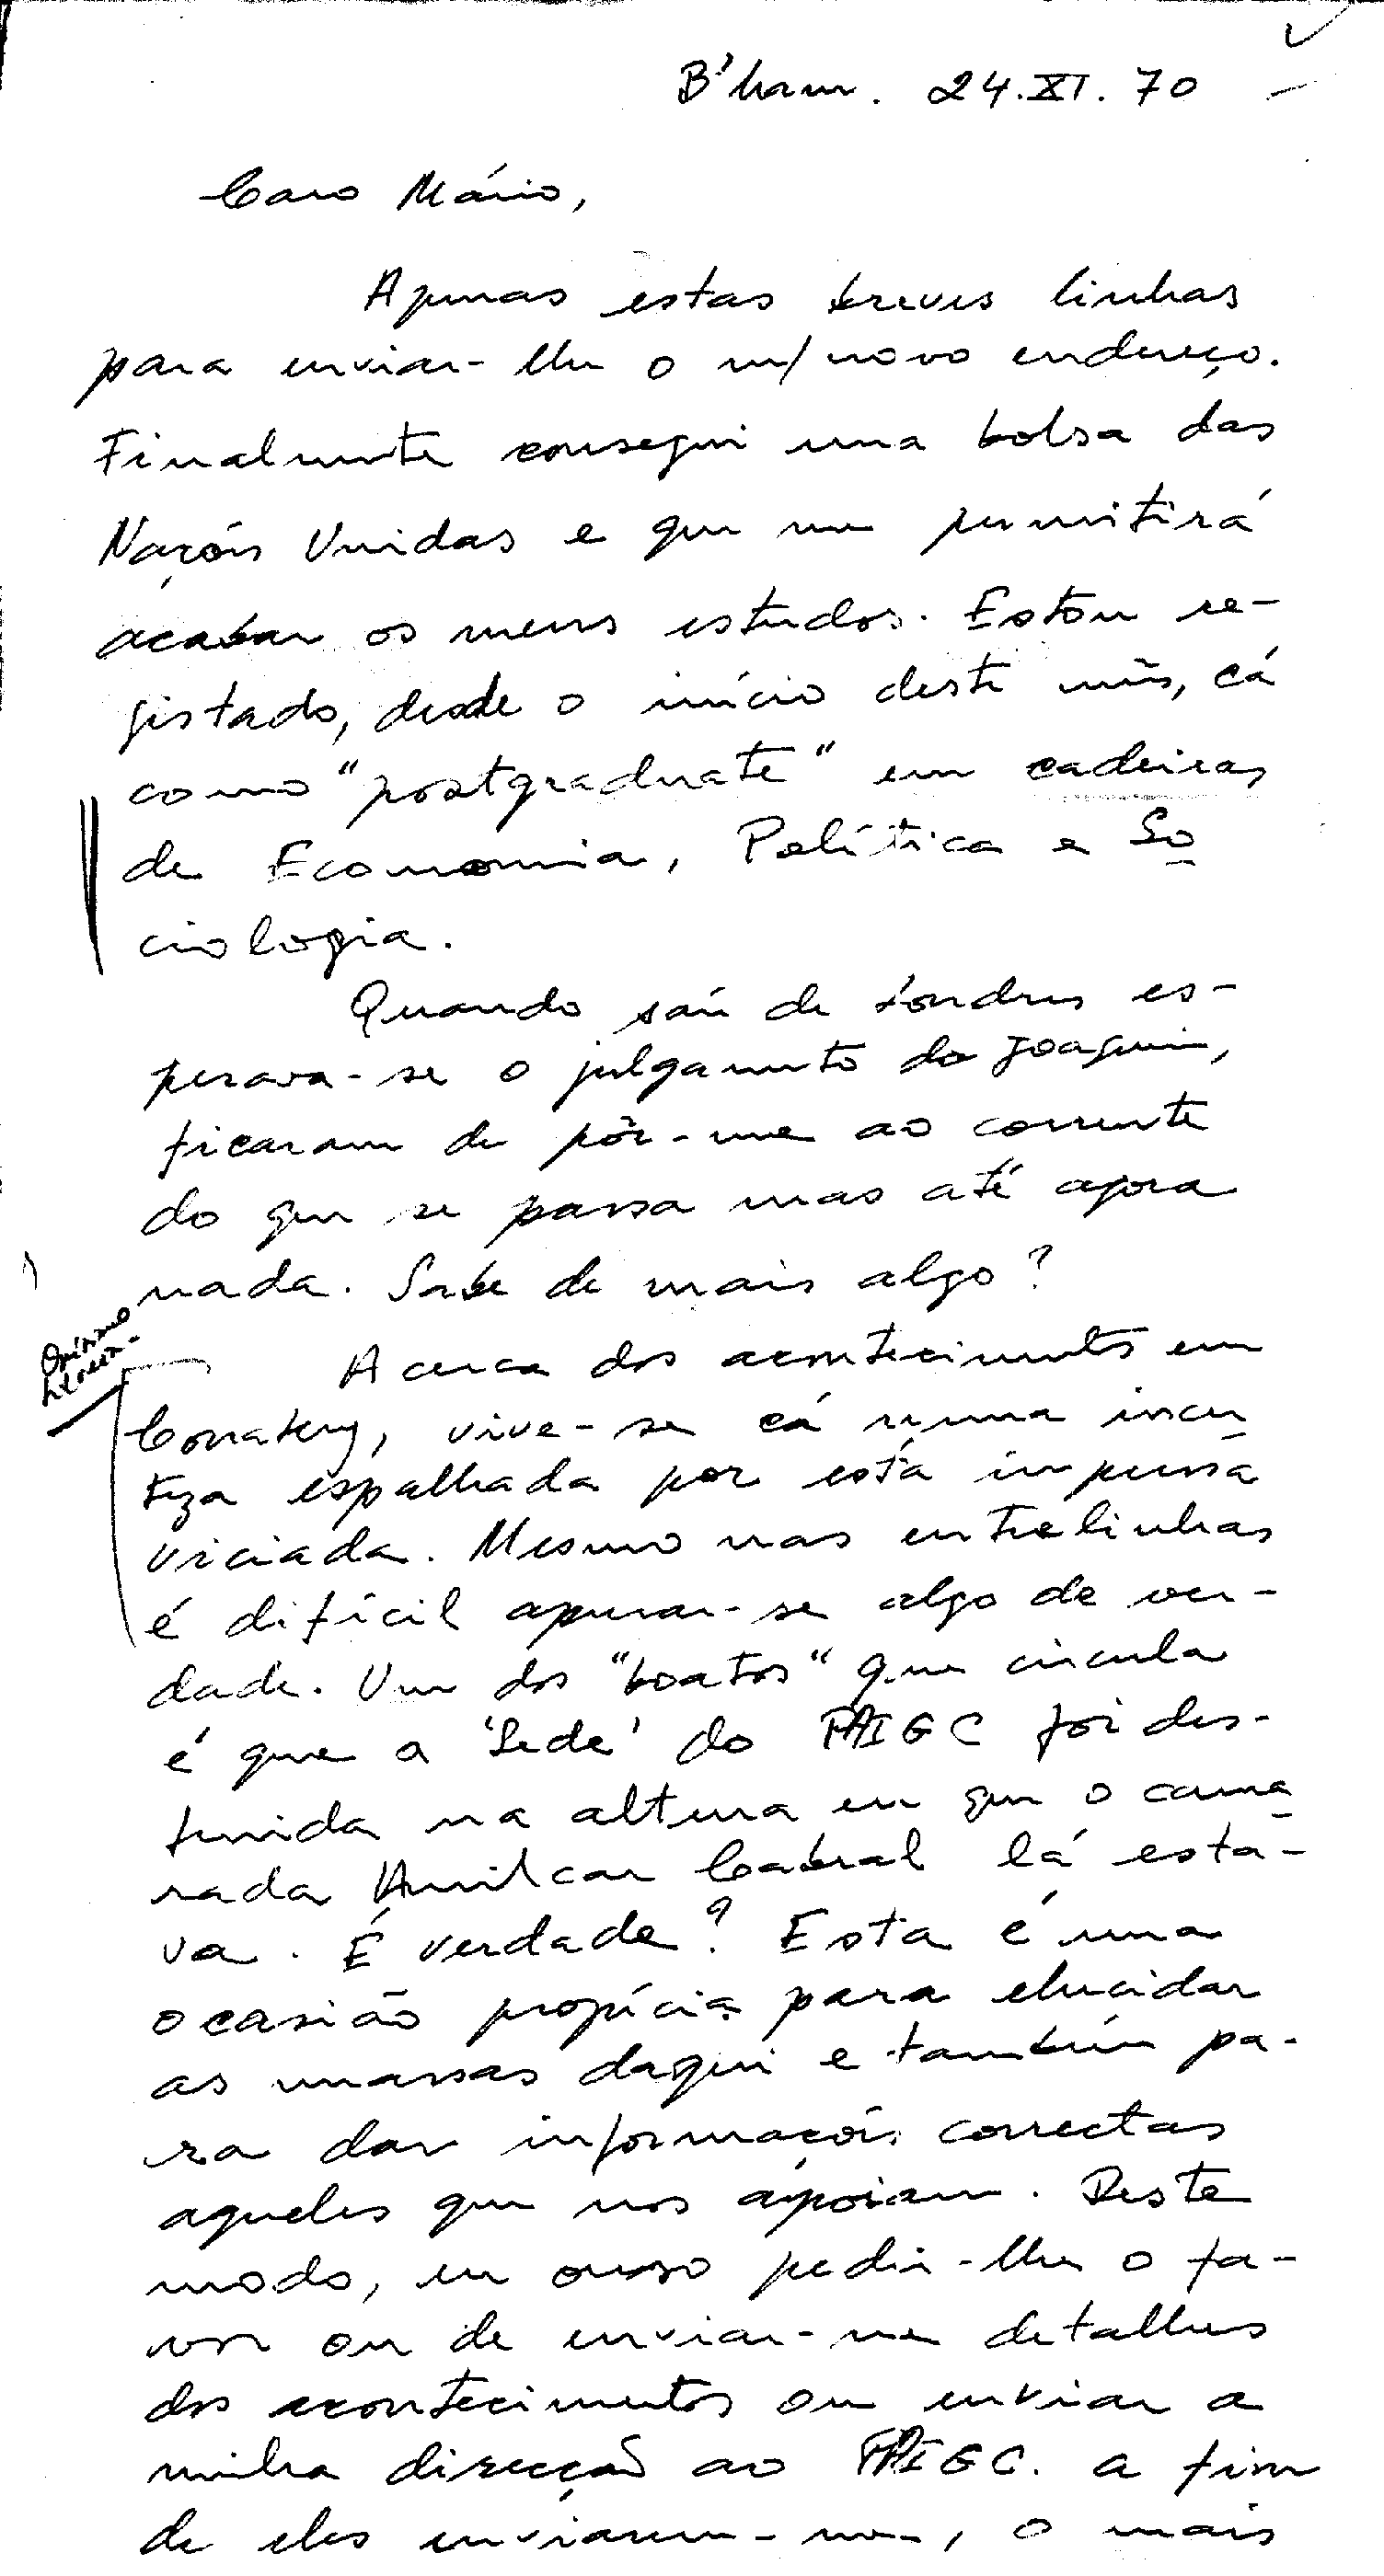 B'ham. 24.XI.70
Caro Mário,
Apenas estas breves linhas
para enviar-lhe o m/novo endereço.
Finalmente consegui uma bolsa das
Nações Unidas e que me permitirá
acabar os meus estudos. Estou re-
gistado, desde o início deste mês, cá
como "postgraduate" em cadeiras
de Economia, Política e So
ciologia.
Quando saí de Londres es-
perava-se o julgamento do Joaquim,
ficaram de pôr-me ao corrente
do que se passa mas até agora
nada. Sabe de mais algo?
Acerca dos acontecimentos em
Conakry, vive-se cá numa incer
teza espalhada por esta imprensa
viciada. Mesmo nas entrelinhas
é difícil apurar-se algo de ver-
dade. Um dos "boatos" que circula
é que a 'Sede' do PAIGC foi des-
truida na altura em que o cama
rada Amilcar Cabral lá esta-
va. É verdade? Esta é uma
ocasião propícia para elucidar
as massas daqui e também pa-
ra dar informações correctas
aqueles que nos apoiam. Deste
modo, eu ouso pedir-lhe o fa-
vor ou de enviar-me detalhes
dos acontecimentos ou enviar a
minha direcção ao PAIGC. a fim
de eles enviarem-me, o mais